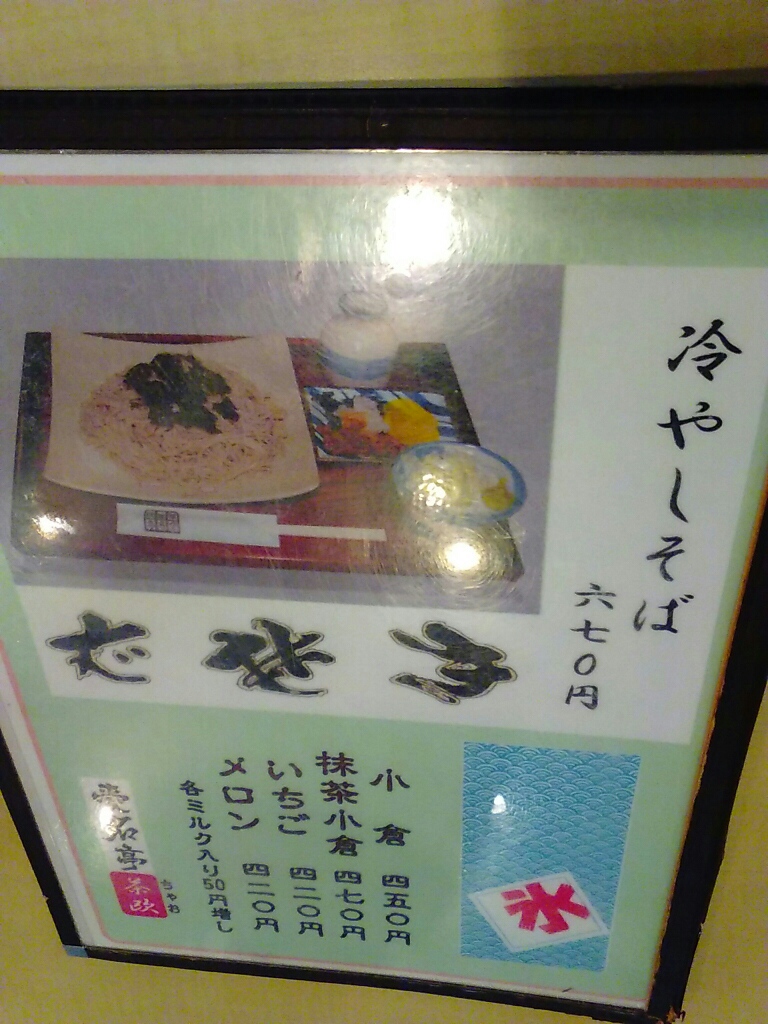 冷やしそば
六七〇円
氷
小倉 四五〇円
抹茶小倉 四七〇円
いちご 四二〇円
メロン 四二〇円
各ミルク入り50円増し
ちゃお